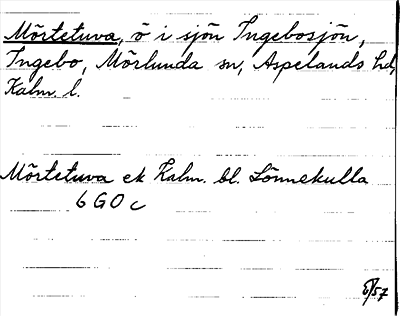 Mörtetuva, ö i sjön Ingebosjön,
Ingebo, Mörlunda sn, Aspelands hd,
Kalm. l.
Mörtetuva ek Kalm. bl. Lönnekulla
6 G O c
/57